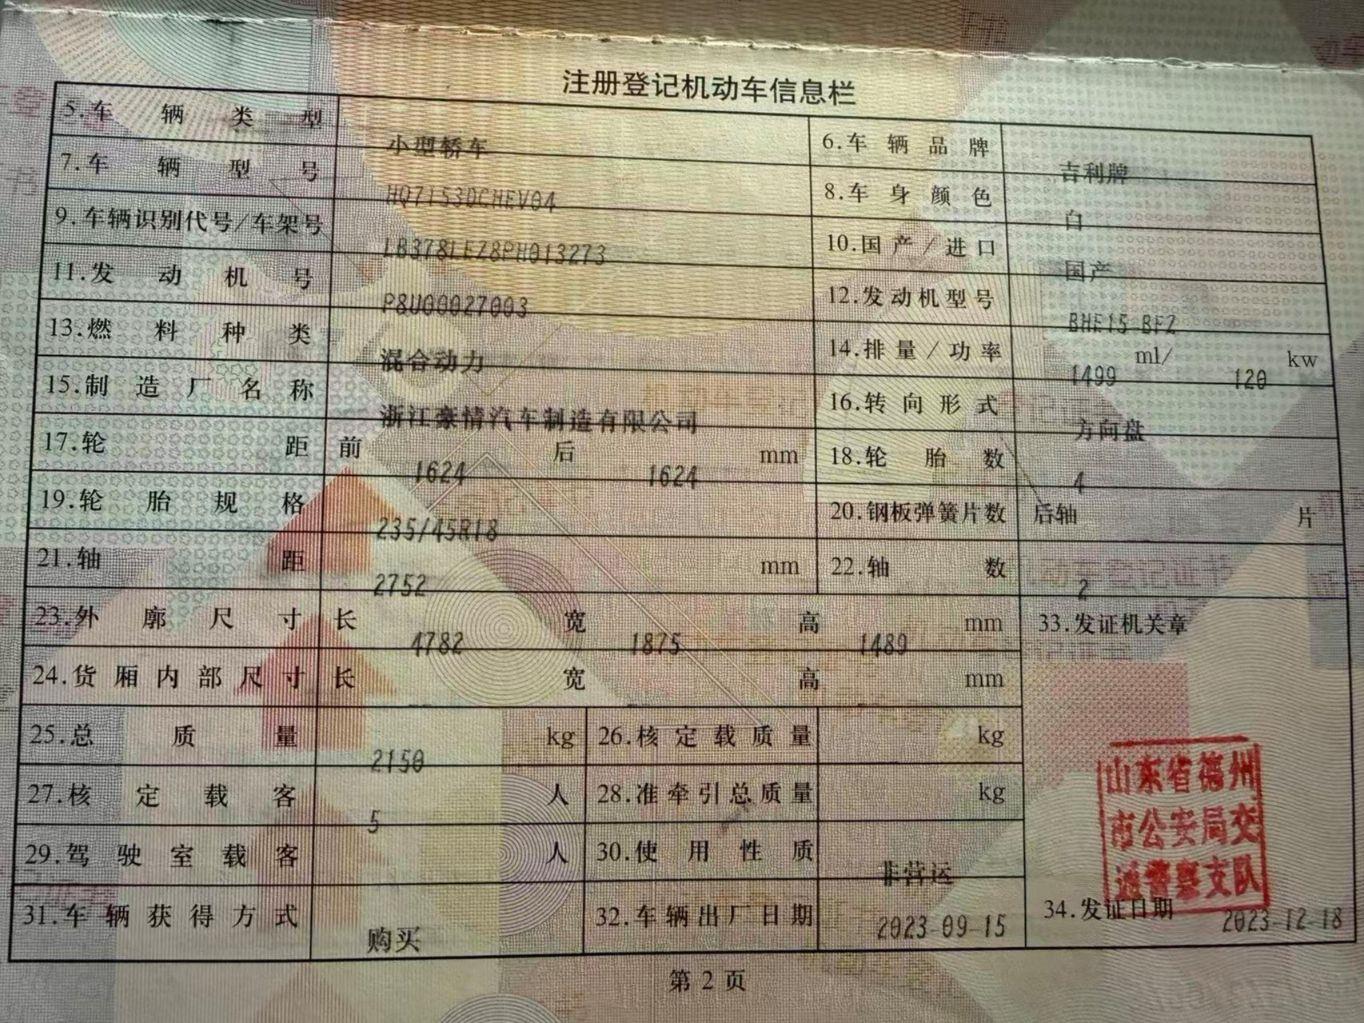 注册登记机动车信息栏
5.车辆类型 小型轿车 6.车辆品牌 吉利牌
7.车辆型号 HQ7153DCHEV04 8.车身颜色 白
9.车辆识别代号/车架号 LB378LEZ8PH013273 10.国产/进口 国产
11.发动机号 P8U00027003 12.发动机型号 BHE15-BFZ
13.燃料种类 混合动力 14.排量/功率 1499 ml/ 120 kw
15.制造厂名称 浙江豪情汽车制造有限公司 16.转向形式 方向盘
17.轮距 前 1624 后 1624 mm 18.轮胎数 4
19.轮胎规格 235/45R18 20.钢板弹簧片数 后轴 片
21.轴距 2752 mm 22.轴数 2
23.外廓尺寸 长 4782 宽 1875 高 1489 mm 33.发证机关章
24.货厢内部尺寸 长 宽 高 mm
25.总质量 2150 kg 26.核定载质量 kg
27.核定载客 5 人 28.准牵引总质量 kg
29.驾驶室载客 人 30.使用性质 非营运
31.车辆获得方式 购买 32.车辆出厂日期 2023-09-15 34.发证日期 2023-12-18
山东省德州
市公安局交
通警察支队
第2页